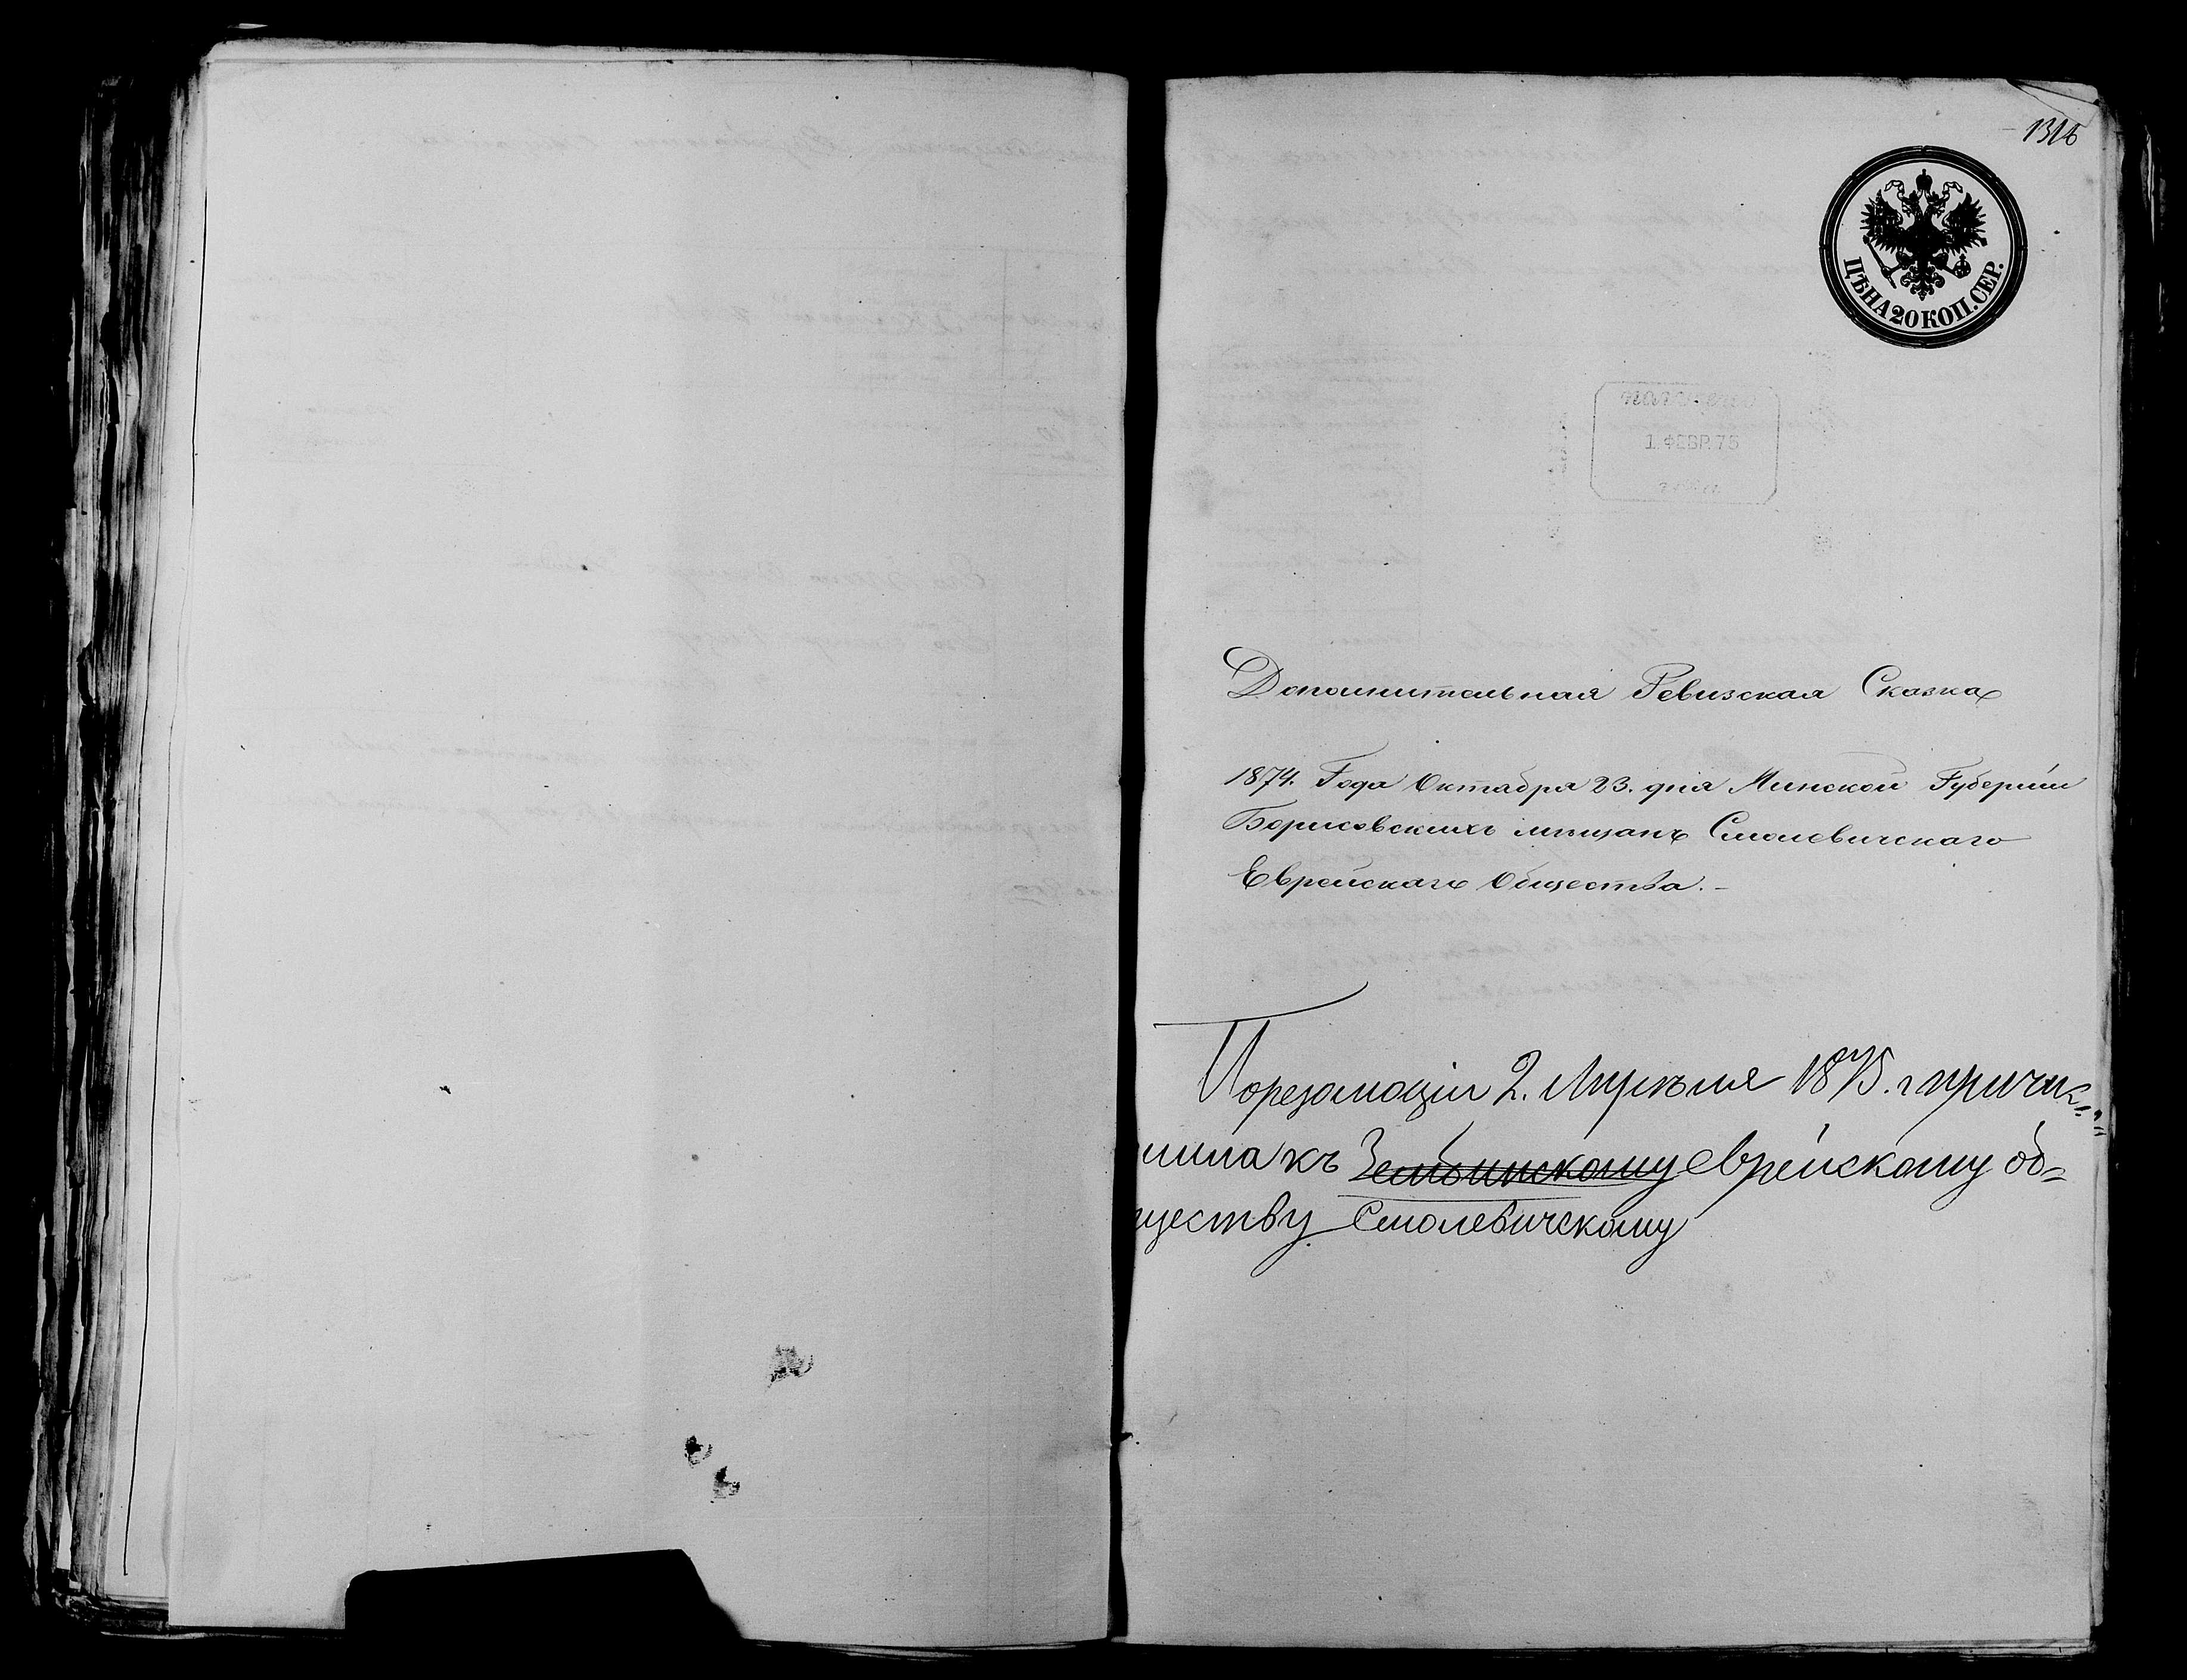 1316
ЦѢНА 20 КОП. СЕР.
1. ФЕВР. 75
Дополнительная Ревизская Сказка
1874. Года Октабря 23. дня Минской Губерніи
Борисовскихъ мѣщанъ Смолевичскаго
Еврейскаго Общества.-
По резолюціи 2. Апрѣля 1875. г причи-
слила къ Зембинскому еврейскому об=
ществу Смолевичскому